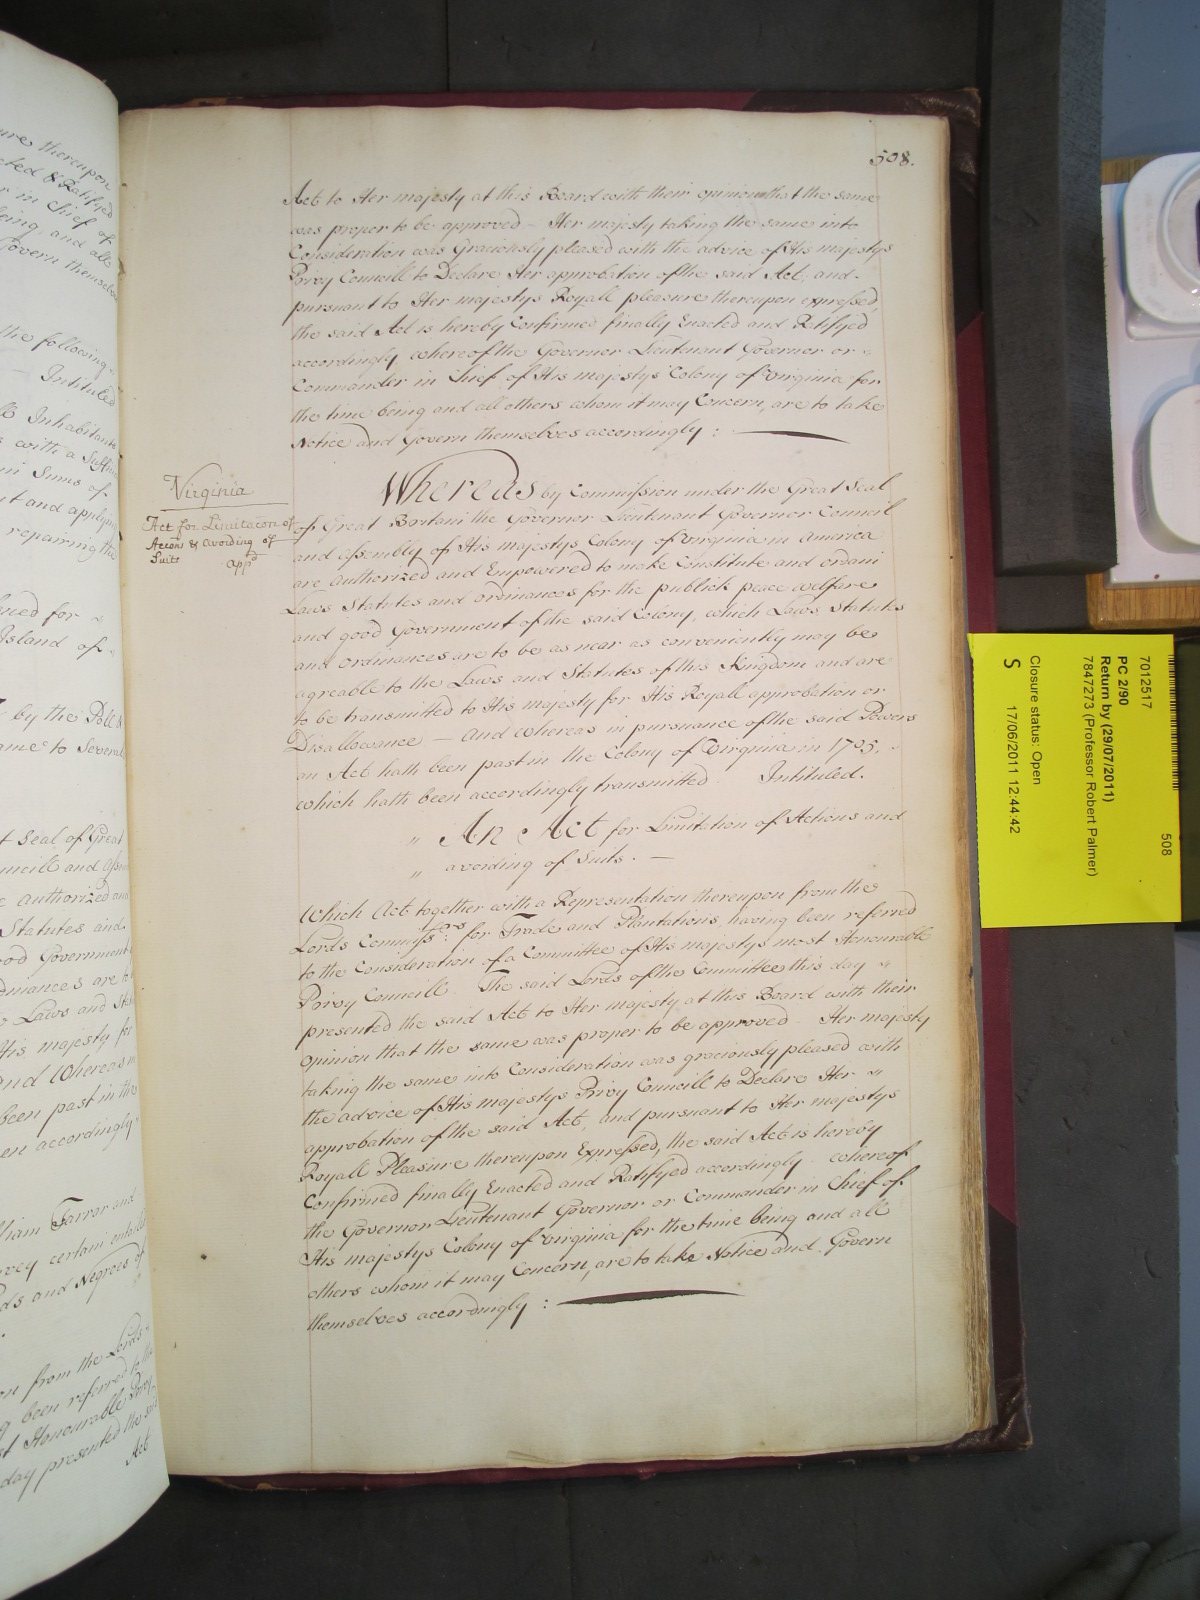 508.
Act to Her majesty at this Board with their opinion that the same
was proper to be approved - Her majesty taking the same into
Consideration was Graciously pleased with the advice of His majestys
Privy Councill to Declare Her approbation of the said Act, and
pursuant to Her majestys Royall pleasure thereupon expressed,
the said Act is hereby Confirmed finally Enacted and Ratifyed
accordingly whereof the Governor Lieutenant Governor or "
Commander in Chief of His majestys Colony of Virginia for
the time being and all others whom it may Concern, are to take
Notice and Govern themselves accordingly :
Virginia
Act for Limitacon of
Accons & avoiding of
Suits appd
Whereas by Commission under the Great Seal
of Great Britain the Governor Lieutenant Governor Council
and assembly of His majestys Colony of Virginia in America
are authorized and Empowered to make Constitute and ordain
Laws Statutes and ordinances for the publick peace welfare
and good Government of the said Colony, which Laws, Statutes
and ordinances are to be as near as conveniently may be
agreable to the Laws and Statutes of this Kingdom and are
to be transmitted to His majesty for His Royall approbation or
Disallowance - And whereas in pursuance of the said Powers
an Act hath been past in the Colony of Virginia in 1705.
which hath been accordingly transmitted. Intituled.
" An Act for Limitation of Actions and
" avoiding of Suits. -
Which Act together with a Representation thereupon from the
Lords Commissrs: for Trade and Plantations, having been referred
to the Consideration of a Committee of His majestys most Honourable
Privy Councill. The said Lords of the Committee this day "
presented the said Act to Her majesty at this Board with their
opinion that the same was proper to be approved - Her majesty
taking the same into Consideration was graciously pleased with
the advice of His majestys Privy Councill to Declare Her "
approbation of the said Act, and pursuant to Her majestys
Royall Pleasure thereupon Expressed, the said Act is hereby
Confirmed finally Enacted and Ratifyed accordingly. whereof
the Governor Lieutenant Governor or Commander in Chief of
His majestys Colony of Virginia for the time being and all
others whom it may Concern, are to take Notice and Govern
themselves accordingly :
ure thereupon
cted & Ratifyed
r in Chief of
eing, and all
Govern themselves
the following
Intituled
Inhabitants
with a
Sums of
t and applying
repairing the
for
Island of
by the Poll
ame to Several
t Seal of Great
uncill and
authorized and
Statutes and
ood Government
dinances are to
Laws and
His majesty for
and Whereas
been past in the
en accordingly
liam Farrar and
vey certain
ds and Negroes of
on from the Lords
g been referred to the
st Honourable Privy
day presented the said
Act
7012517
508
PC 2/90
Return by (29/07/2011)
7847273 (Professor Robert Palmer)
Closure status: Open
S 17/06/2011 12:44:42